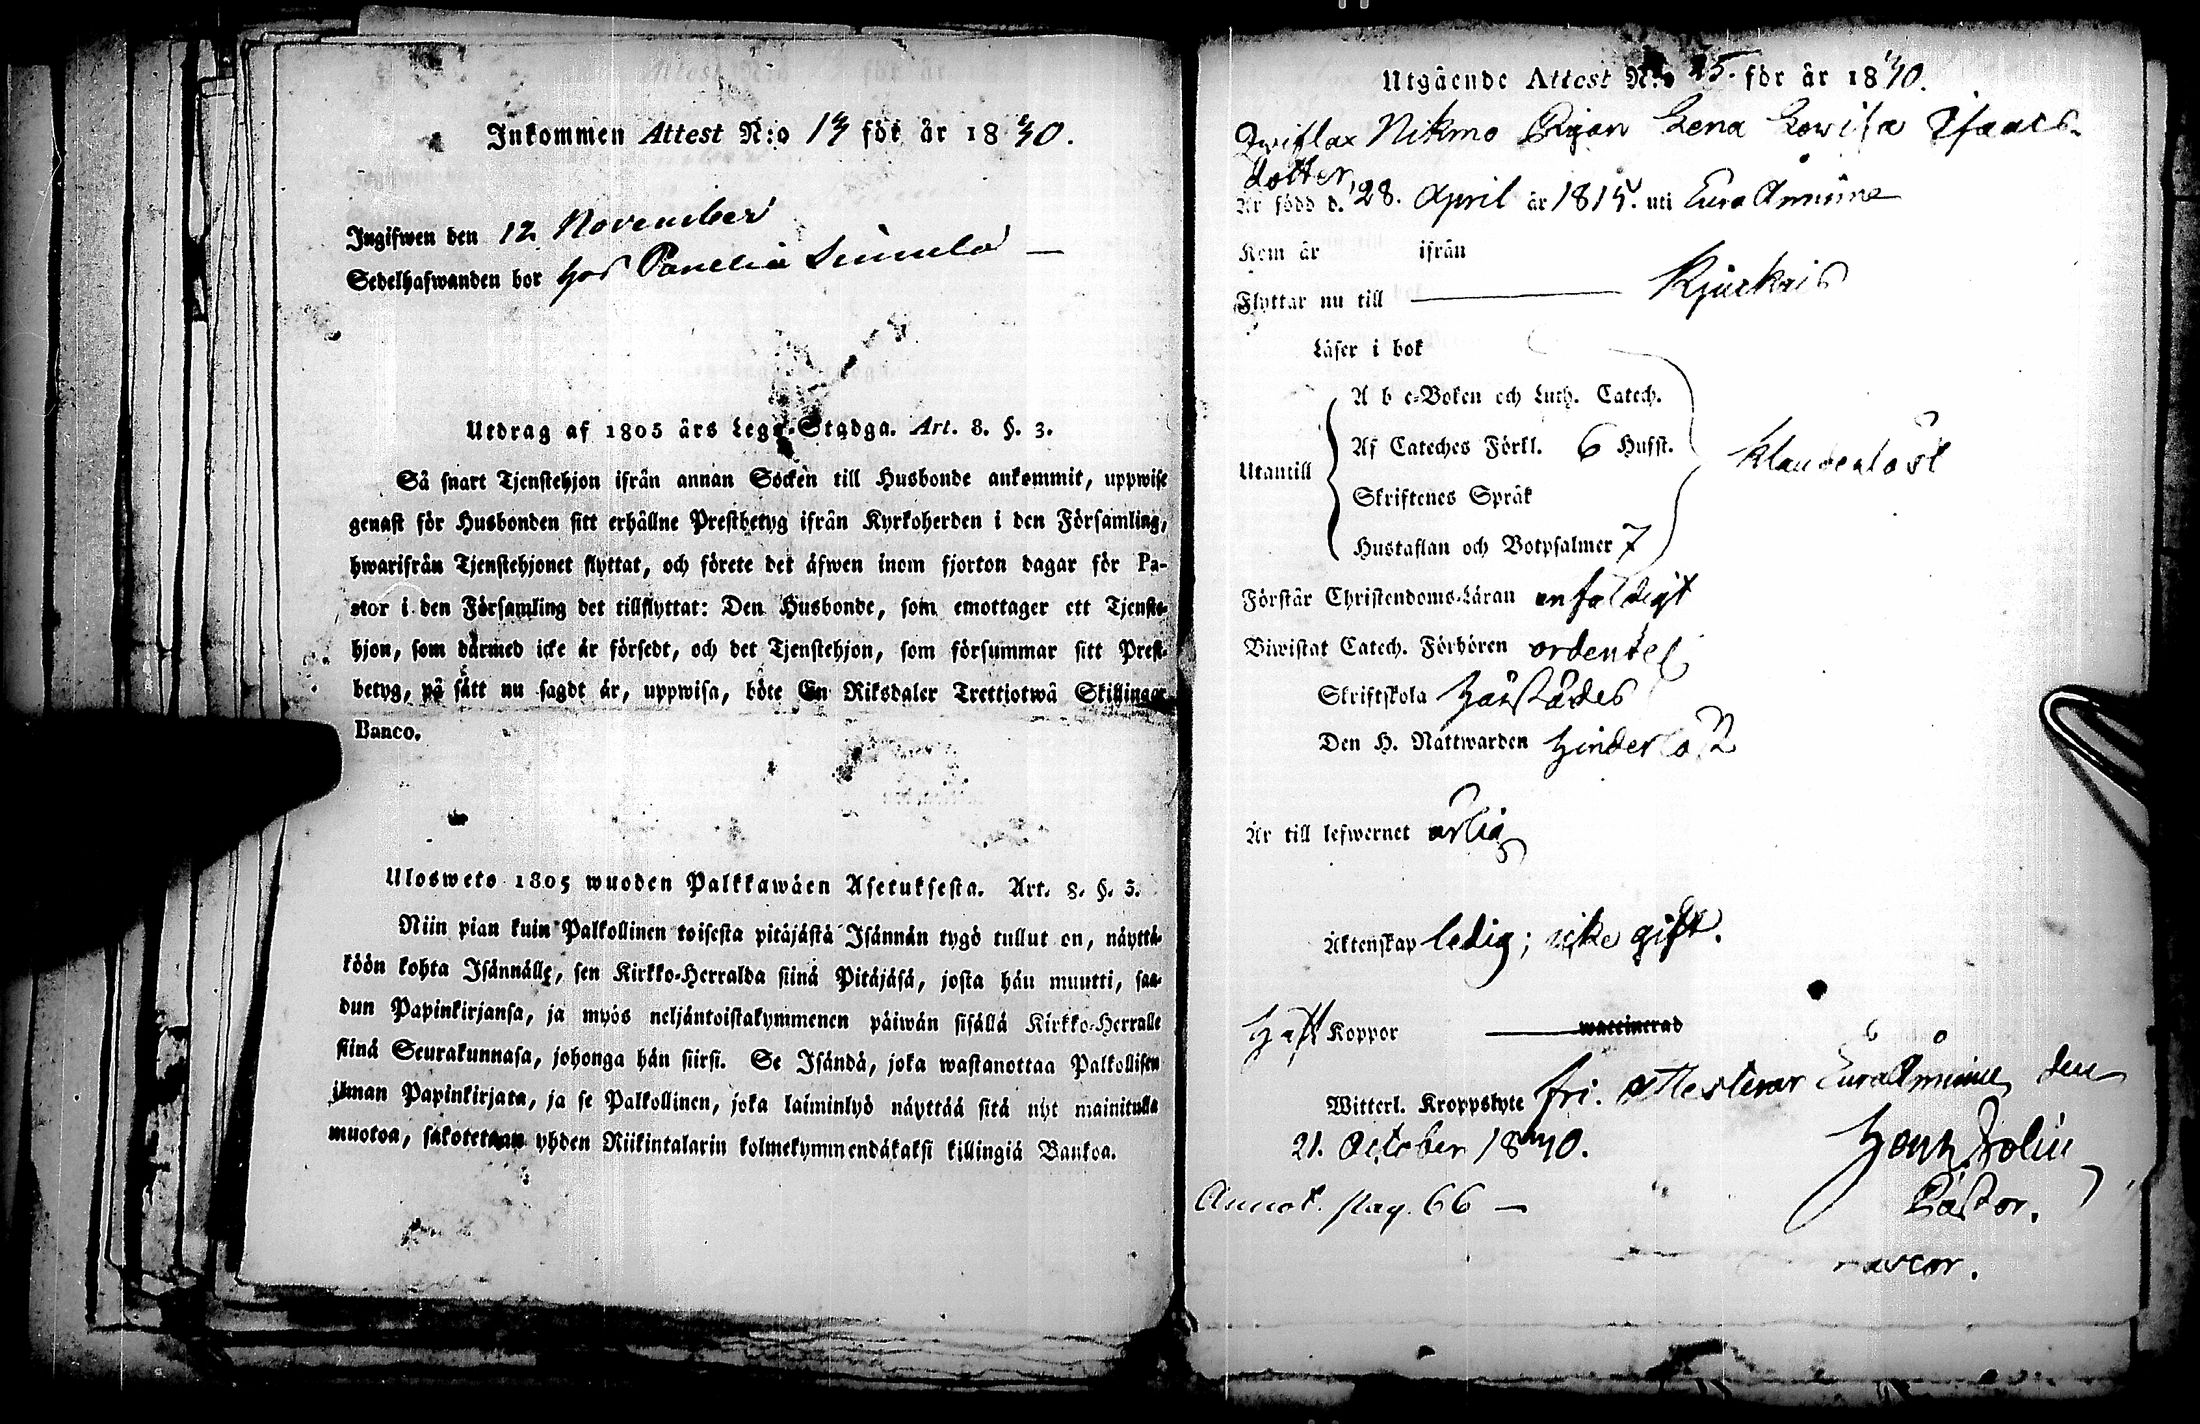 Inkommen Attest N:o 14 för år 1840.
Ingifwen den 12 November
Sedelhafwanden bor hos Panelia
Utdrag af 1805 års Lego-Stadga. Art. 8. §. 3.
Så snart Tjenstehjon ifrån annan Socken till Husbonde ankommit, uppwise
genast för Husbonden sitt erhållne Prestbetyg ifrån Kyrkoherden i den Församling,
hwarifrån Tjenstehjonet flyttat, och förete det äfwen inom fjorton dagar för Pa-
stor i den Församling det tillflyttat: Den Husbonde, som emottager ett Tjenste-
hjon, som därmed icke är försedt, och det Tjenstehjon, som försummar sitt Prest-
betyg, på sätt nu sagdt är, uppwisa, böte En Riksdaler Trettiotwå Skillingar
Banco.
Ulosweto 1805 wuoden Palkkawäen Asetuksesta. Art. 8. §. 3.
Niin pian kuin Palkollinen toisesta pitäjästä Isännän tygö tullut on, näyttä-
köön kohta Isännälle, sen Kirkko-Herralda siinä Pitäjäsä, josta hän muutti, saa-
dun Papinkirjansa, ja myös neljäntoistakymmenen päiwän sisällä Kirkko-Herralle
siinä Seurakunnasa, johonga hän siirsi. Se Isändä, joka wastanottaa Palkollisen
ilman Papinkirjata, ja se Palkollinen, joka laiminlyö näyttää sitä nyt mainitulla
muotoa, sakotetaan yhden Riikintalarin kolmekymmendäkaksi killingiä Bankoa.
Utgående Attest N:o 25. för år 1840.
Nikmo Pigan Lena Lowisa Isacs-
dotter,
Är född d. 28. April år 1815. uti Eura Åminne
Kom år ifrån
Flyttar nu till Kjukais
Läser i bok
A b c-Boken och Luth. Catech.
Utantill Af Cateches Förkl. 6 Hufst. klanderlöst
Skriftenes Språk
Hustaflan och Botpsalmer 7
Förstår Christendoms-Läran enfaldigt
Biwistat Catech. Förhören ordentel
Skriftskola härstädes
Den H. Nattwarden hinderlöst
Är till lefwernet ärlig
Äktenskap ledig; icke gift.
Haft Koppor waccinerad
Witterl. Kroppslyte fri. attesterar Eura Åminne den
21. October 1840.
Pastor.
Annot. pag. 66 —